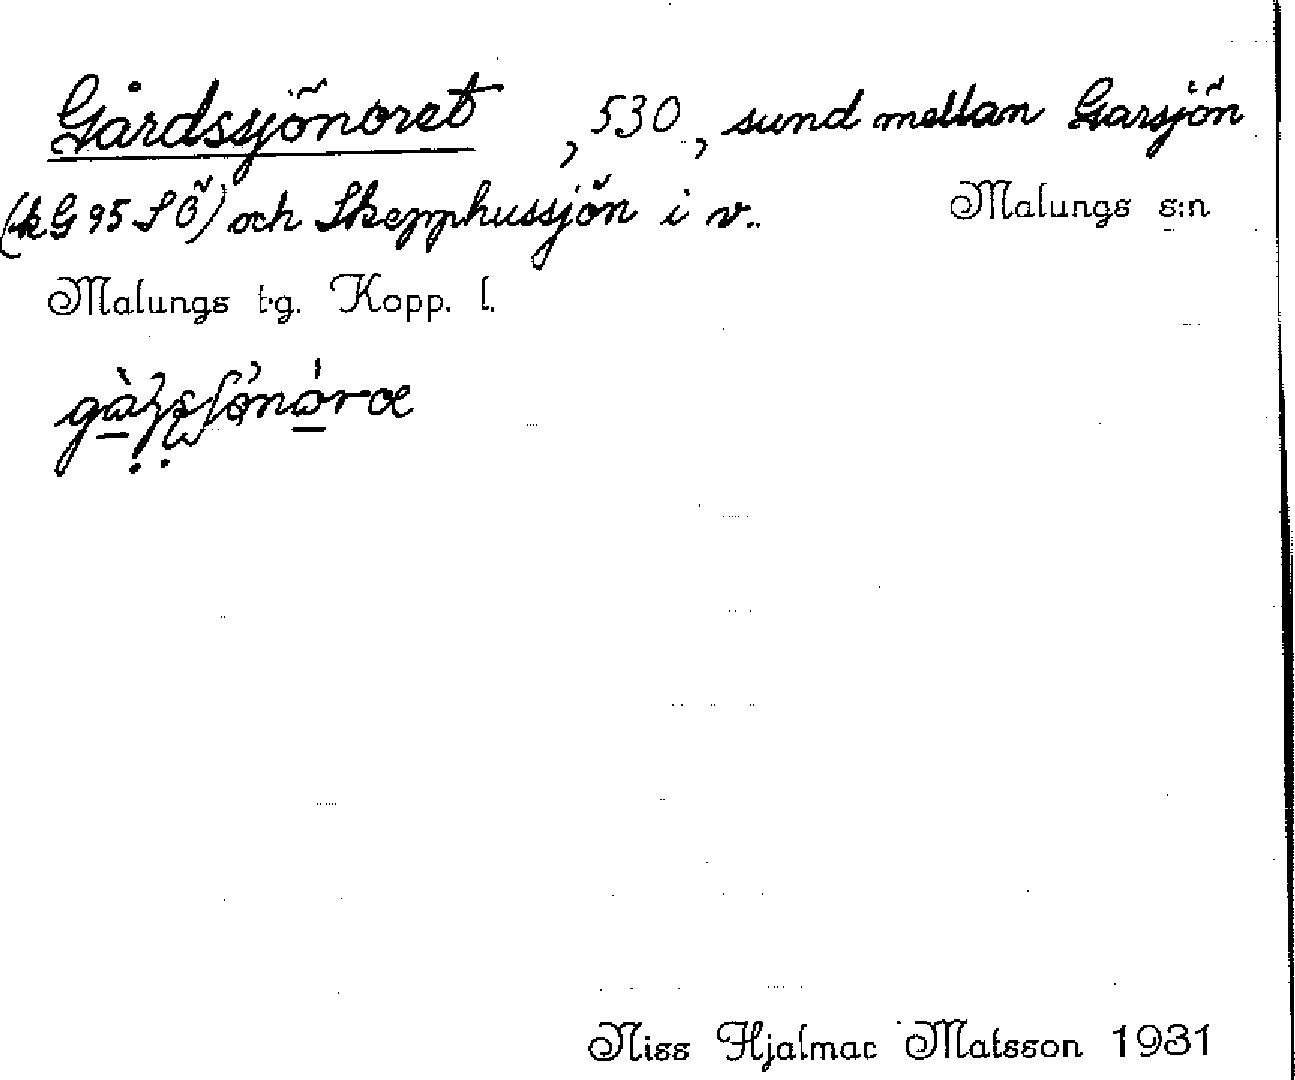 Gårdssjönoret, 530, sund mellan Garsjön
(kG 95 SÖ) och Skepphussjön i v.. Malungs s:n
Malungs t·g. Kopp. l.
Niss Hjalmar Matsson 1931